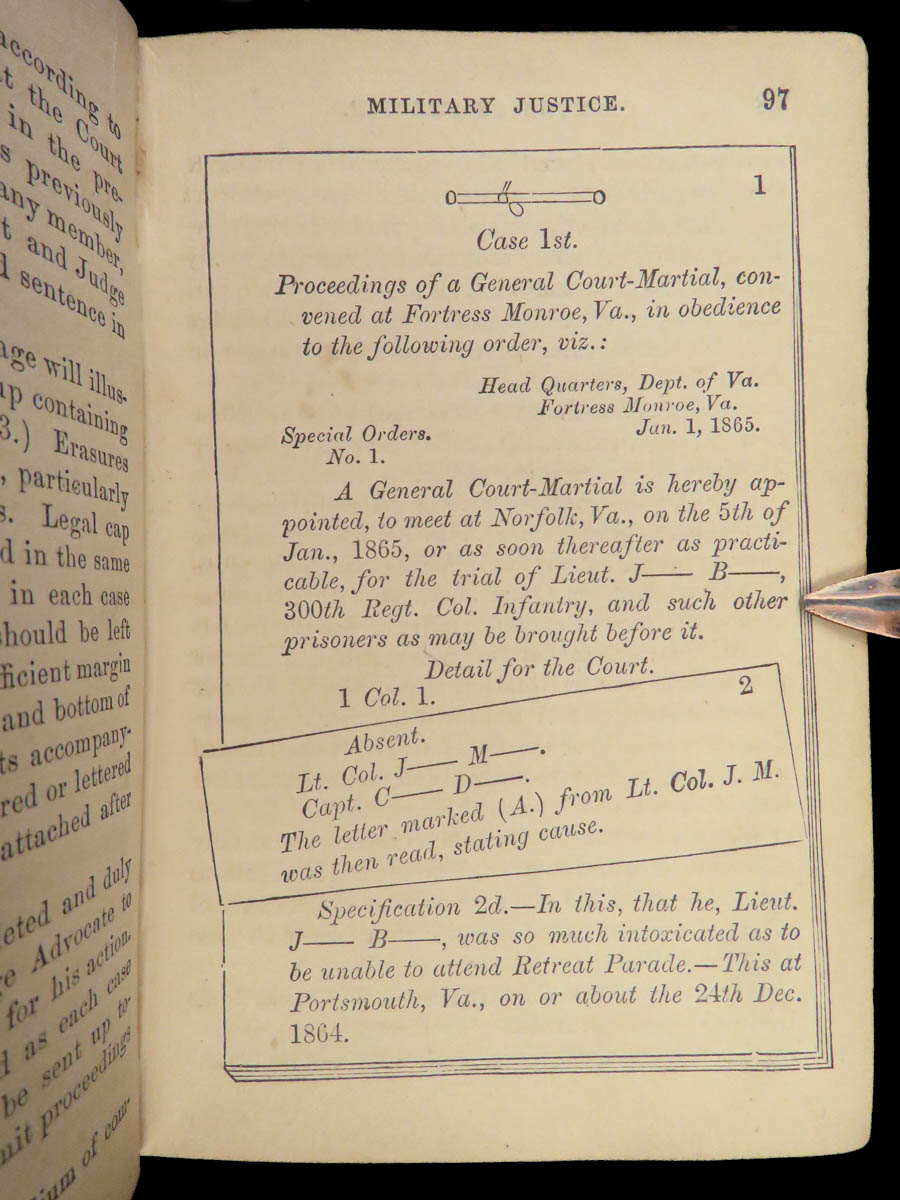 according to
t the Court
in the pre-
s previously
any member,
t and Judge
d sentence in
age will illus-
up containing
3.) Erasures
, particularly
s. Legal cap
d in the same
in each case
should be left
fficient margin
and bottom of
ts accompany-
red or lettered
attached after
eted and duly
e Advocate to
for his action.
d as each case
be sent up to-
mit proceedings
ium of cour-
MILITARY JUSTICE. 97
1
Case 1st.
Proceedings of a General Court-Martial, con-
vened at Fortress Monroe, Va., in obedience
to the following order, viz.:
Head Quarters, Dept. of Va.
Fortress Monroe, Va.
Jan. 1, 1865.
Special Orders.
No. 1.
A General Court-Martial is hereby ap-
pointed, to meet at Norfolk, Va., on the 5th of
Jan., 1865, or as soon thereafter as practi-
cable, for the trial of Lieut. J—— B——,
300th Regt. Col. Infantry, and such other
prisoners as may be brought before it.
Detail for the Court.
1 Col. 1.
2
Absent.
Lt. Col. J—— M——.
Capt. C—— D——.
The letter marked (A.) from Lt. Col. J. M.
was then read, stating cause.
Specification 2d.—In this, that he, Lieut.
J—— B——, was so much intoxicated as to
be unable to attend Retreat Parade.—This at
Portsmouth, Va., on or about the 24th Dec.
1864.